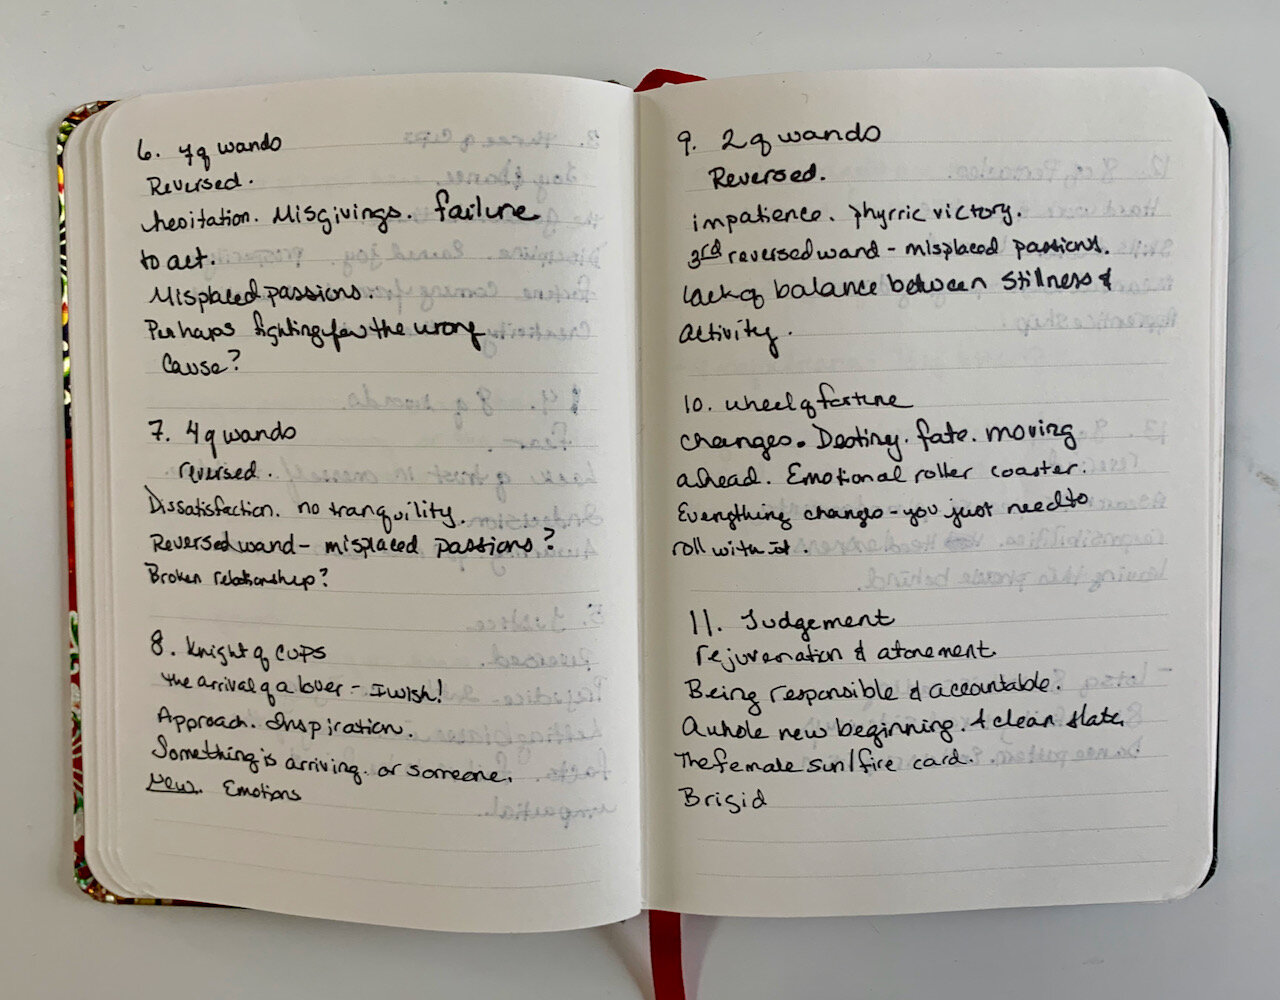 6. 7 of wands
Reversed.
hesitation. Misgivings. failure
to act.
Misplaced passions.
Perhaps fighting for the wrong
Cause?
7. 4 of wands
reversed.
Dissatisfaction. no tranquility.
Reversed wand - misplaced passions?
Broken relationship?
8. Knight of Cups
The arrival of a lover - I wish!
Approach. Inspiration.
Something is arriving. or someone.
New. Emotions
9. 2 of wands
Reversed.
impatience. phyrric victory.
3rd reversed wand - misplaced passions.
lack of balance between Stillness &
Activity.
10. wheel of fortune
changes. Destiny. fate. moving
ahead. Emotional roller coaster.
Everything changes - you just need to
roll with it.
11. Judgement
rejuvenation & atonement
Being responsible & accountable.
A whole new beginning. A clean slate.
The female sun/fire card.
Brigid